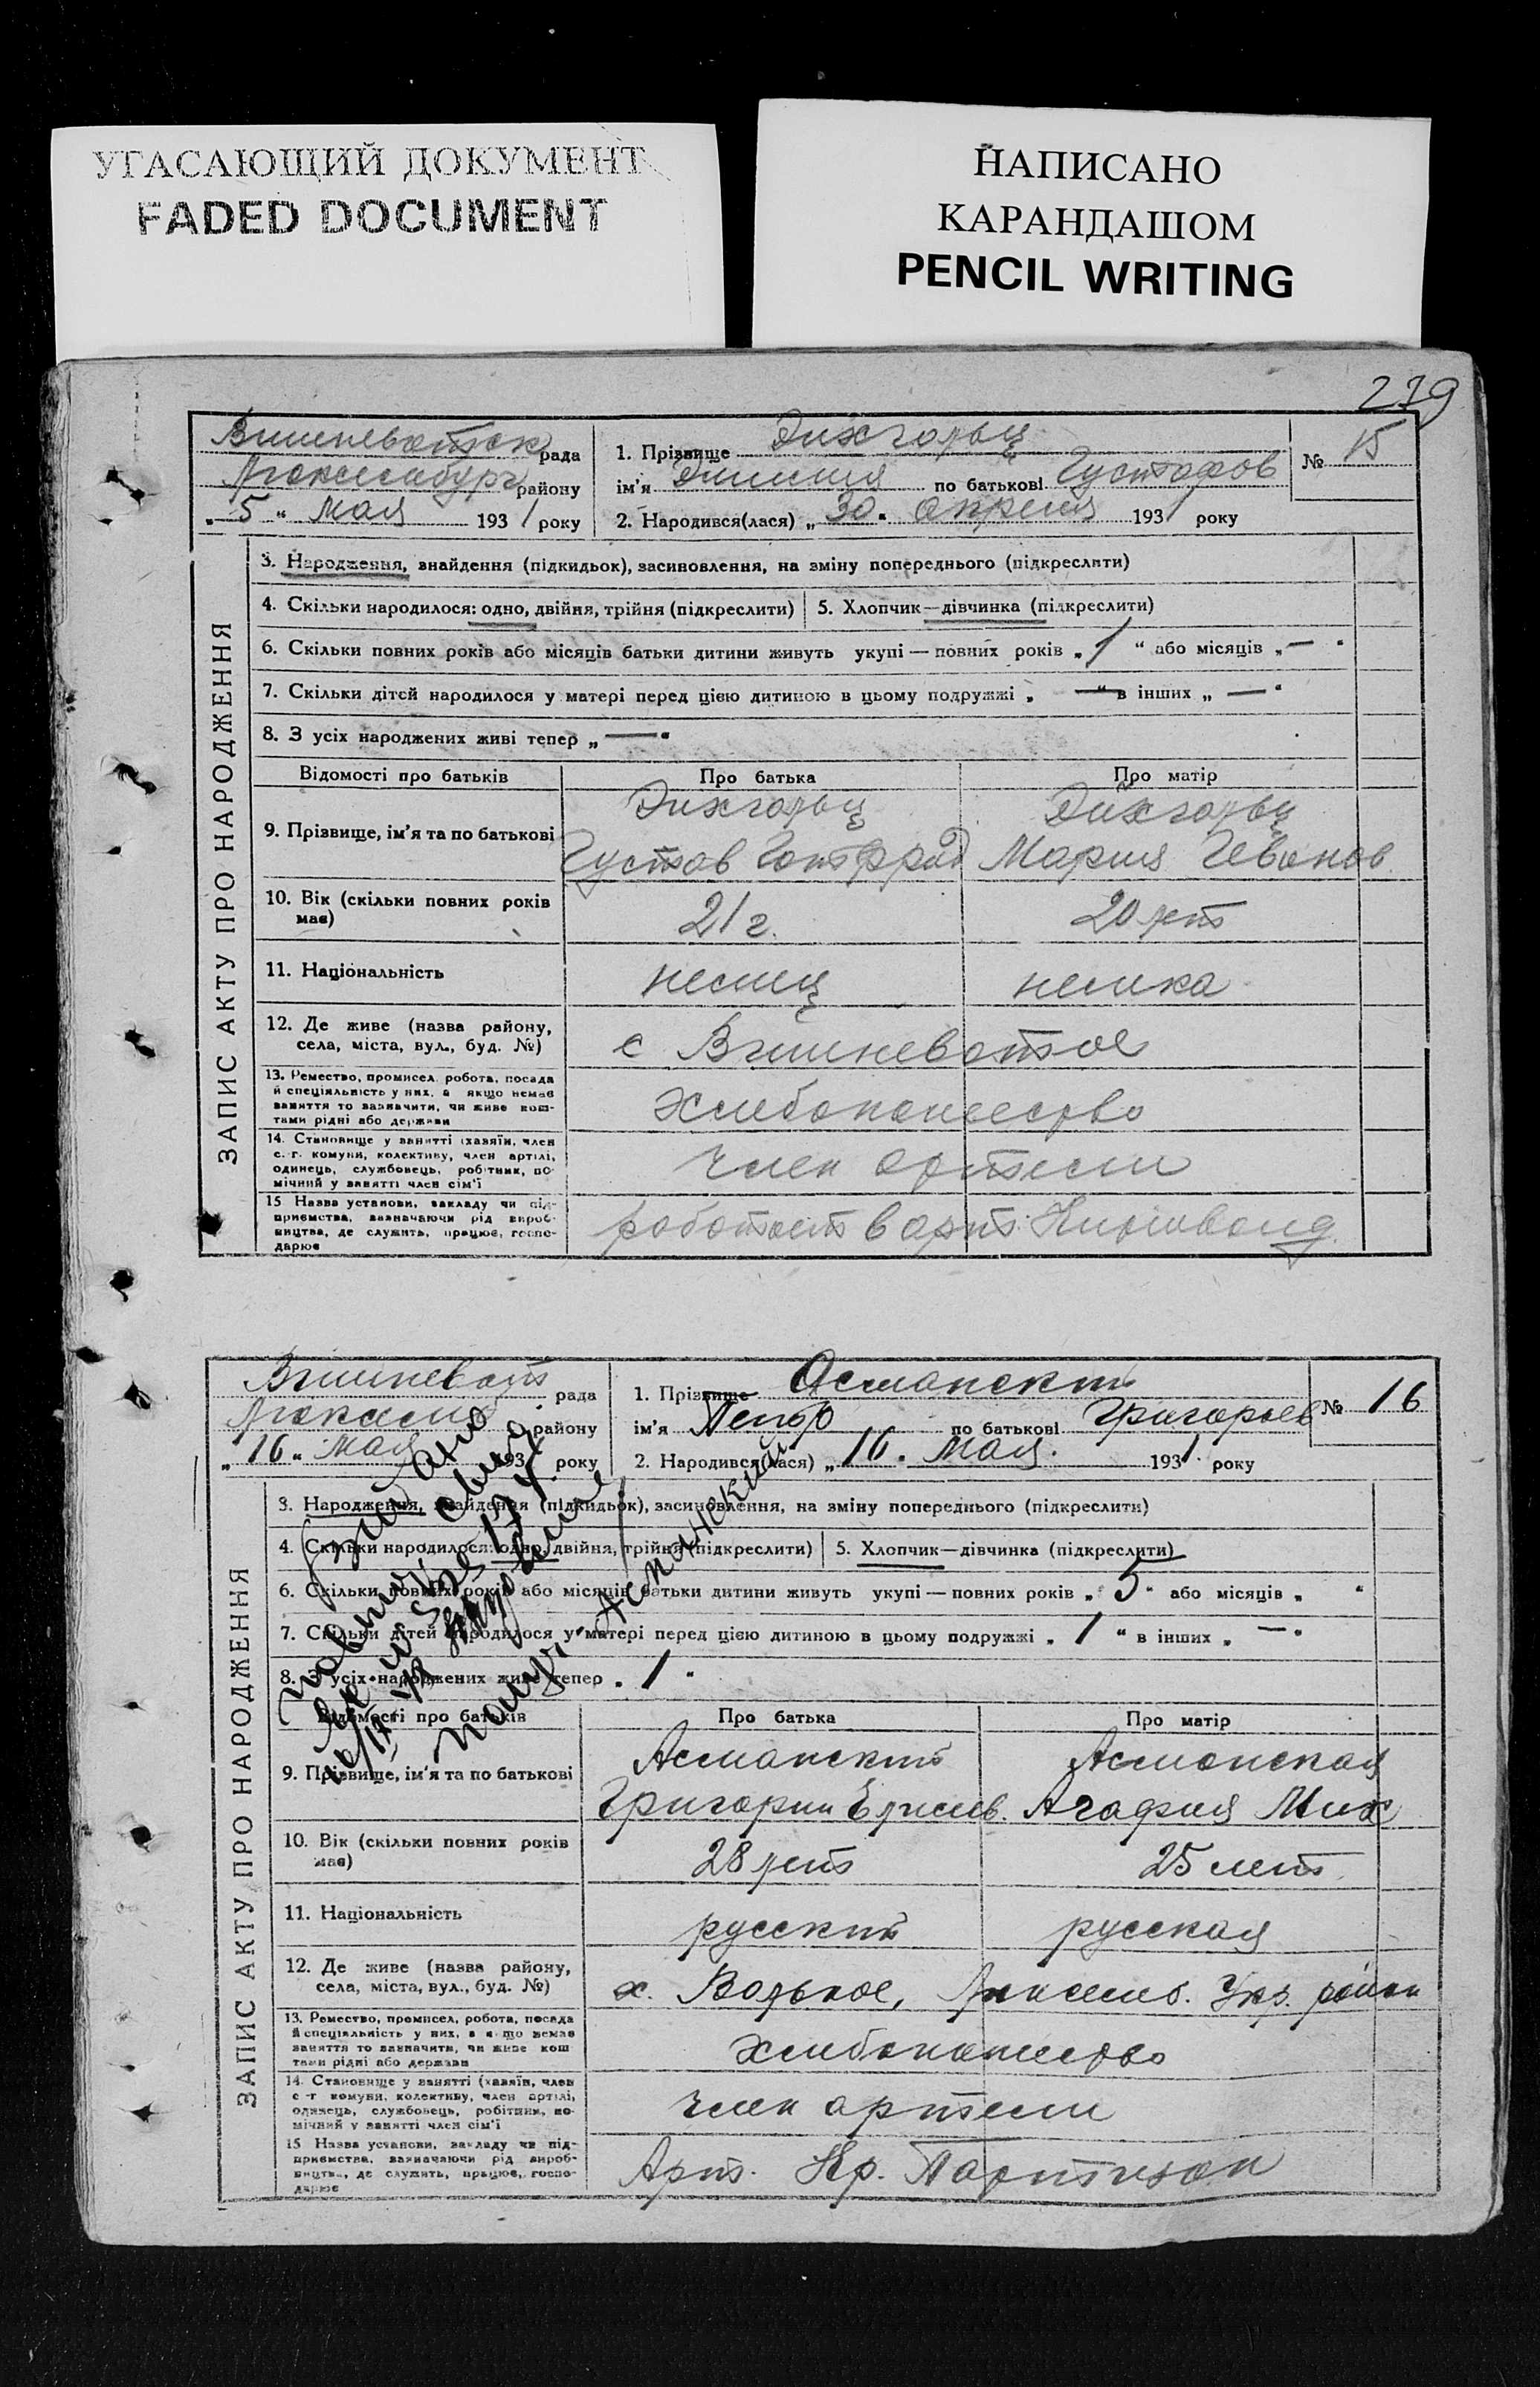 УГАСАЮЩИЙ ДОКУМЕНТ
FADED DOCUMENT
НАПИСАНО
КАРАНДАШОМ
PENCIL WRITING
279
ЗАПИС АКТУ ПРО НАРОДЖЕННЯ
Вишневатск рада
Люксембург району
„5“ Мая 1931 року
1. Прізвище Эйхгольц
ім'я Эмилия по батькові Густафов
№ 15
2. Народився(лася) „30“ Апреля 1931 року
3. Народження, знайдення (підкидьок), засиновлення, на зміну попереднього (підкреслити)
4. Скільки народилося: одно, двійня, трійня (підкреслити) 5. Хлопчик—дівчинка (підкреслити)
6. Скільки повних років або місяців батьки дитини живуть укупі — повних років „1“ або місяців „—“
7. Скільки дітей народилося у матері перед цією дитиною в цьому подружжі „—“ в інших „—“
8. З усіх народжених живі тепер „—“
Відомості про батьків Про батька Про матір
9. Прізвище, ім'я та по батькові
Эйхгольц Эйхгольц
Густав Готфрид Мария Иванов
10. Вік (скільки повних років має) 21 г. 20 лет
11. Національність немец немка
12. Де живе (назва району, села, міста, вул., буд. №) с Вишневатое
13. Ремество, промисел, робота, посада й спеціяльність у них, а якщо немає заняття то зазначити, чи живе коштами рідні або держави хлебопашество
14. Становище у занятті (хазяїн, член с.-г. комуни, колективу, член артілі, одинець, службовець, робітник, помічний у занятті член сім'ї член артели
15 Назва установи, закладу чи підприємства, зазначаючи рід виробництва, де служить, працює, господарює работает в арт.
ЗАПИС АКТУ ПРО НАРОДЖЕННЯ
Вишневат рада
Люксемб району
„16“ Мая 1931 року
1. Прізвище Асманский
ім'я Петр по батькові Григорьев
№ 16
2. Народився(лася) „16“ Мая 1931 року
3. Народження, знайдення (підкидьок), засиновлення, на зміну попереднього (підкреслити)
4. Скільки народилося: одно, двійня, трійня (підкреслити) 5. Хлопчик—дівчинка (підкреслити)
6. Скільки повних років або місяців батьки дитини живуть укупі — повних років „5“ або місяців „ “
7. Скільки дітей народилося у матері перед цією дитиною в цьому подружжі „1“ в інших „—“
8. З усіх народжених живі тепер „1“
Відомості про батьків Про батька Про матір
9. Прізвище, ім'я та по батькові
Асманский Асманская
Григорий Елисев. Агафия Мих
10. Вік (скільки повних років має) 28 лет 25 лет
11. Національність русский русская
12. Де живе (назва району, села, міста, вул., буд. №) х. Вольное, Люксемб. Укр. район
13. Ремество, промисел, робота, посада й спеціяльність у них, а якщо немає заняття то зазначити, чи живе коштами рідні або держави хлебопашество
14. Становище у занятті (хазяїн, член с.-г. комуни, колективу, член артілі, одинець, службовець, робітник, помічний у занятті член сім'ї член артели
15 Назва установи, закладу чи підприємства, зазначаючи рід виробництва, де служить, працює, господарює Арт. Кр. Партизан
Выдано
повторн. свид.
Асманский